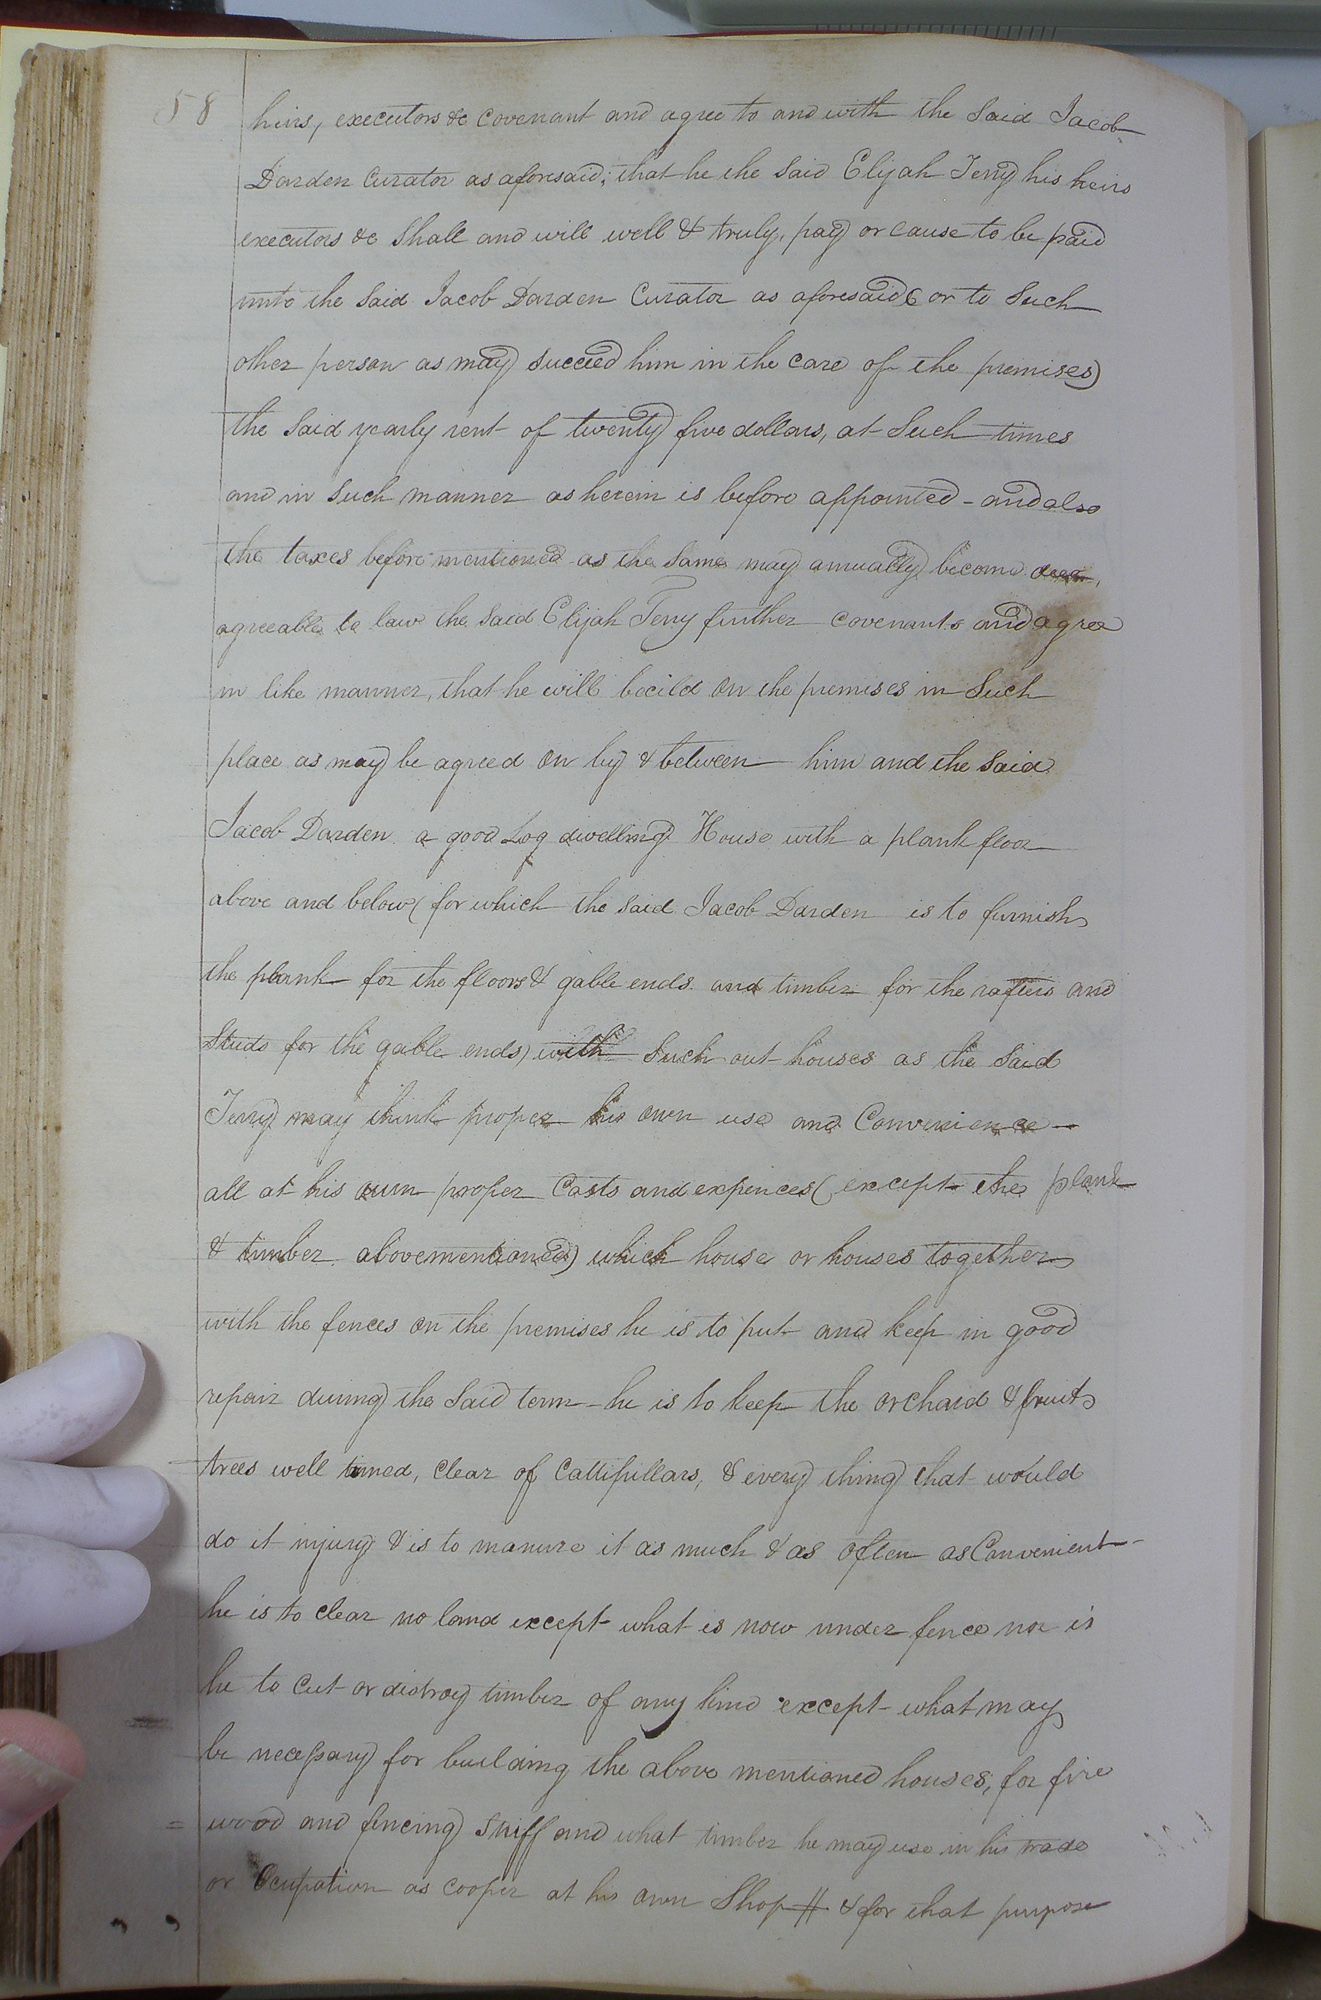 58
heirs, executors &c covenant and agree to and with the said Jacob
Darden Curator as aforesaid; that he the said Elijah Terry his heirs
executors &c shall and will well & truly, pay or cause to be paid
unto the said Jacob Darden Curator as aforesaid (or to such
other person as may succeed him in the care of the premises)
the said yearly rent of twenty five dollars, at such times
and in such manner as herein is before appointed - and also
the taxes before mentioned as the same may annually become
agreeable to law the said Elijah Terry further covenants and agree
in like manner, that he will build on the premises in such
place as may be agreed on by & between him and the said
Jacob Darden a good Log dwelling House with a plank floor
above and below (for which the said Jacob Darden is to furnish
the plank for the floors & gable ends and timber for the rafters and
studs for the gable ends) with such out houses as the said
Terry may think proper his own use and Convenience -
all at his own proper Costs and expences (except the plank
& timber abovementioned) which house or houses together
with the fences on the premises he is to put and keep in good
repair during the said term - he is to keep the orchard & fruit
trees well, clear of Cattipillars, & every thing that would
do it injury & is to manure it as much & as often as Convenient -
he is to clear no land except what is now under fence nor is
he to cut or distroy timber of any kind except what may
be necessary for building the above mentioned houses, for fire
= wood and fencing stuff and what timber he may use in his trade
or Ocupation as cooper at his own Shop # & for that purpose